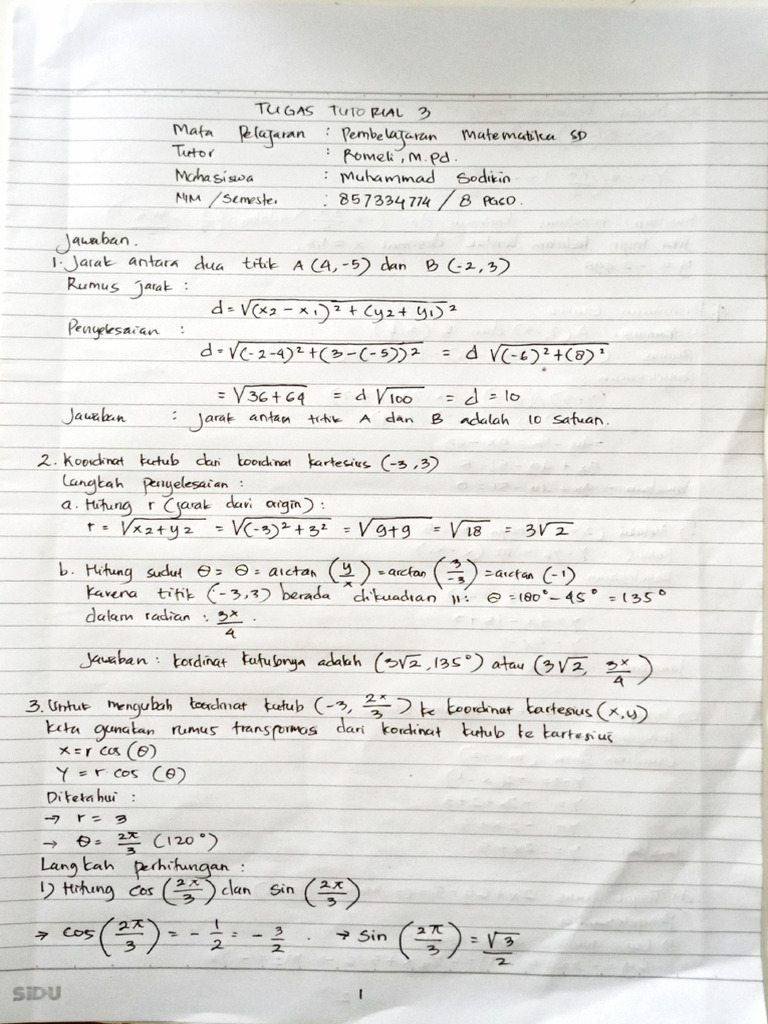 TUGAS TUTORIAL 3
Mata Pelajaran : Pembelajaran Matematika SD
Tutor : Romeli, M.Pd.
Mahasiswa : Muhammad Sodikin
NIM / Semester : 857334774 / 8 PGSD.
Jawaban.
1. Jarak antara dua titik A (4,-5) dan B (-2,3)
Rumus jarak :
d = √(x2 - x1)² + (y2 + y1)²
Penyelesaian :
d = √(-2-4)² + (3-(-5))² = d √(-6)² + (8)²
= √36+64 = d √100 = d = 10
Jawaban : Jarak antara titik A dan B adalah 10 satuan.
2. Koordinat kutub dari koordinat kartesius (-3,3)
Langkah penyelesaian :
a. Hitung r (jarak dari origin) :
r = √x2+y2 = √(-3)²+3² = √9+9 = √18 = 3√2
b. Hitung sudut θ = θ = arctan (y/x) = arctan (3/-3) = arctan (-1)
Karena titik (-3,3) berada dikuadran II: θ = 180° - 45° = 135°
dalam radian : 3x/4.
Jawaban : kordinat kutubnya adalah (3√2, 135°) atau (3√2, 3x/4)
3. Untuk mengubah koordinat kutub (-3, 2x/3) ke koordinat kartesius (x,y)
kita gunakan rumus transformasi dari kordinat kutub ke kartesius
x = r cos (θ)
Y = r cos (θ)
Diketahui :
→ r = 3
→ θ = 2π/3 (120°)
Langkah perhitungan :
1) Hitung cos (2x/3) dan sin (2π/3)
→ cos (2π/3) = - 1/2 = - 3/2 . → sin (2π/3) = √3/2
SiDU
1